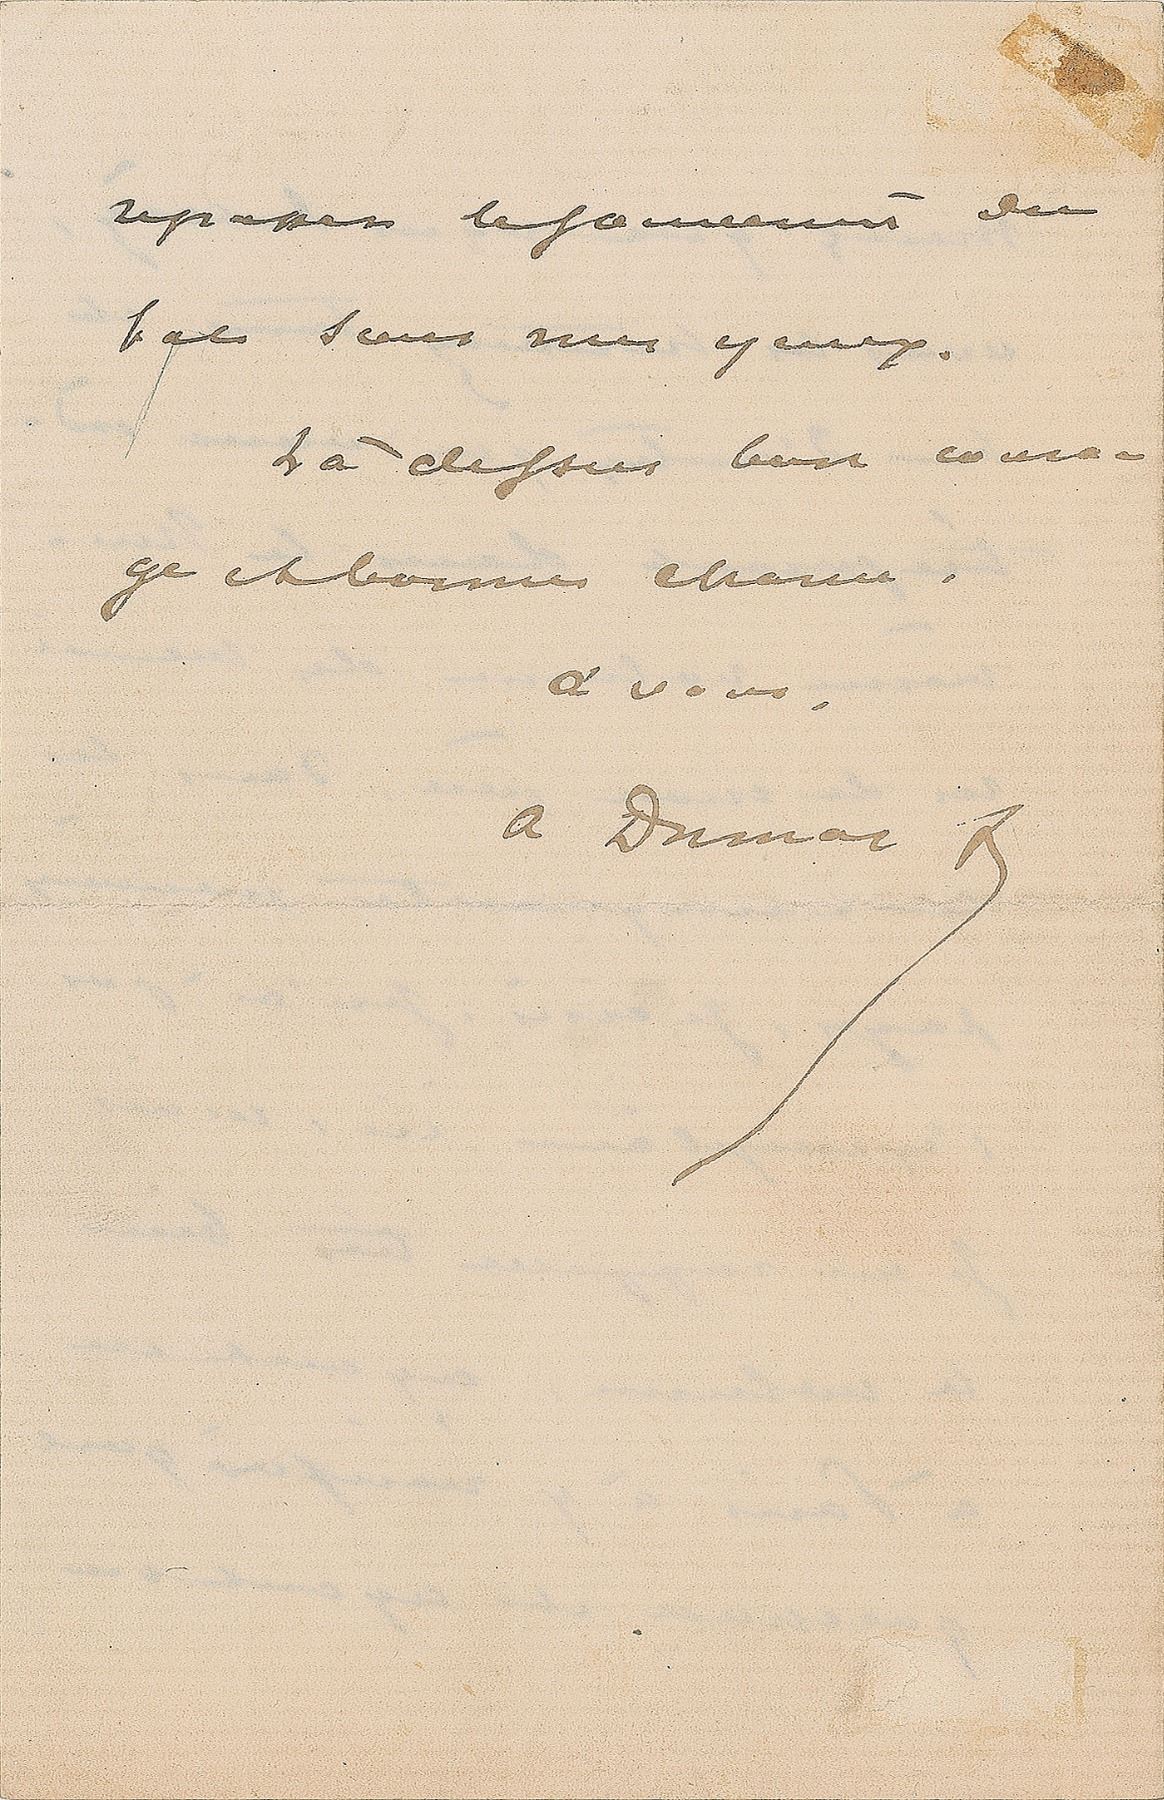 repasser du
sous mes yeux.
Là dessus bon coura-
ge et bonne chance.
à vous,
A Dumas f